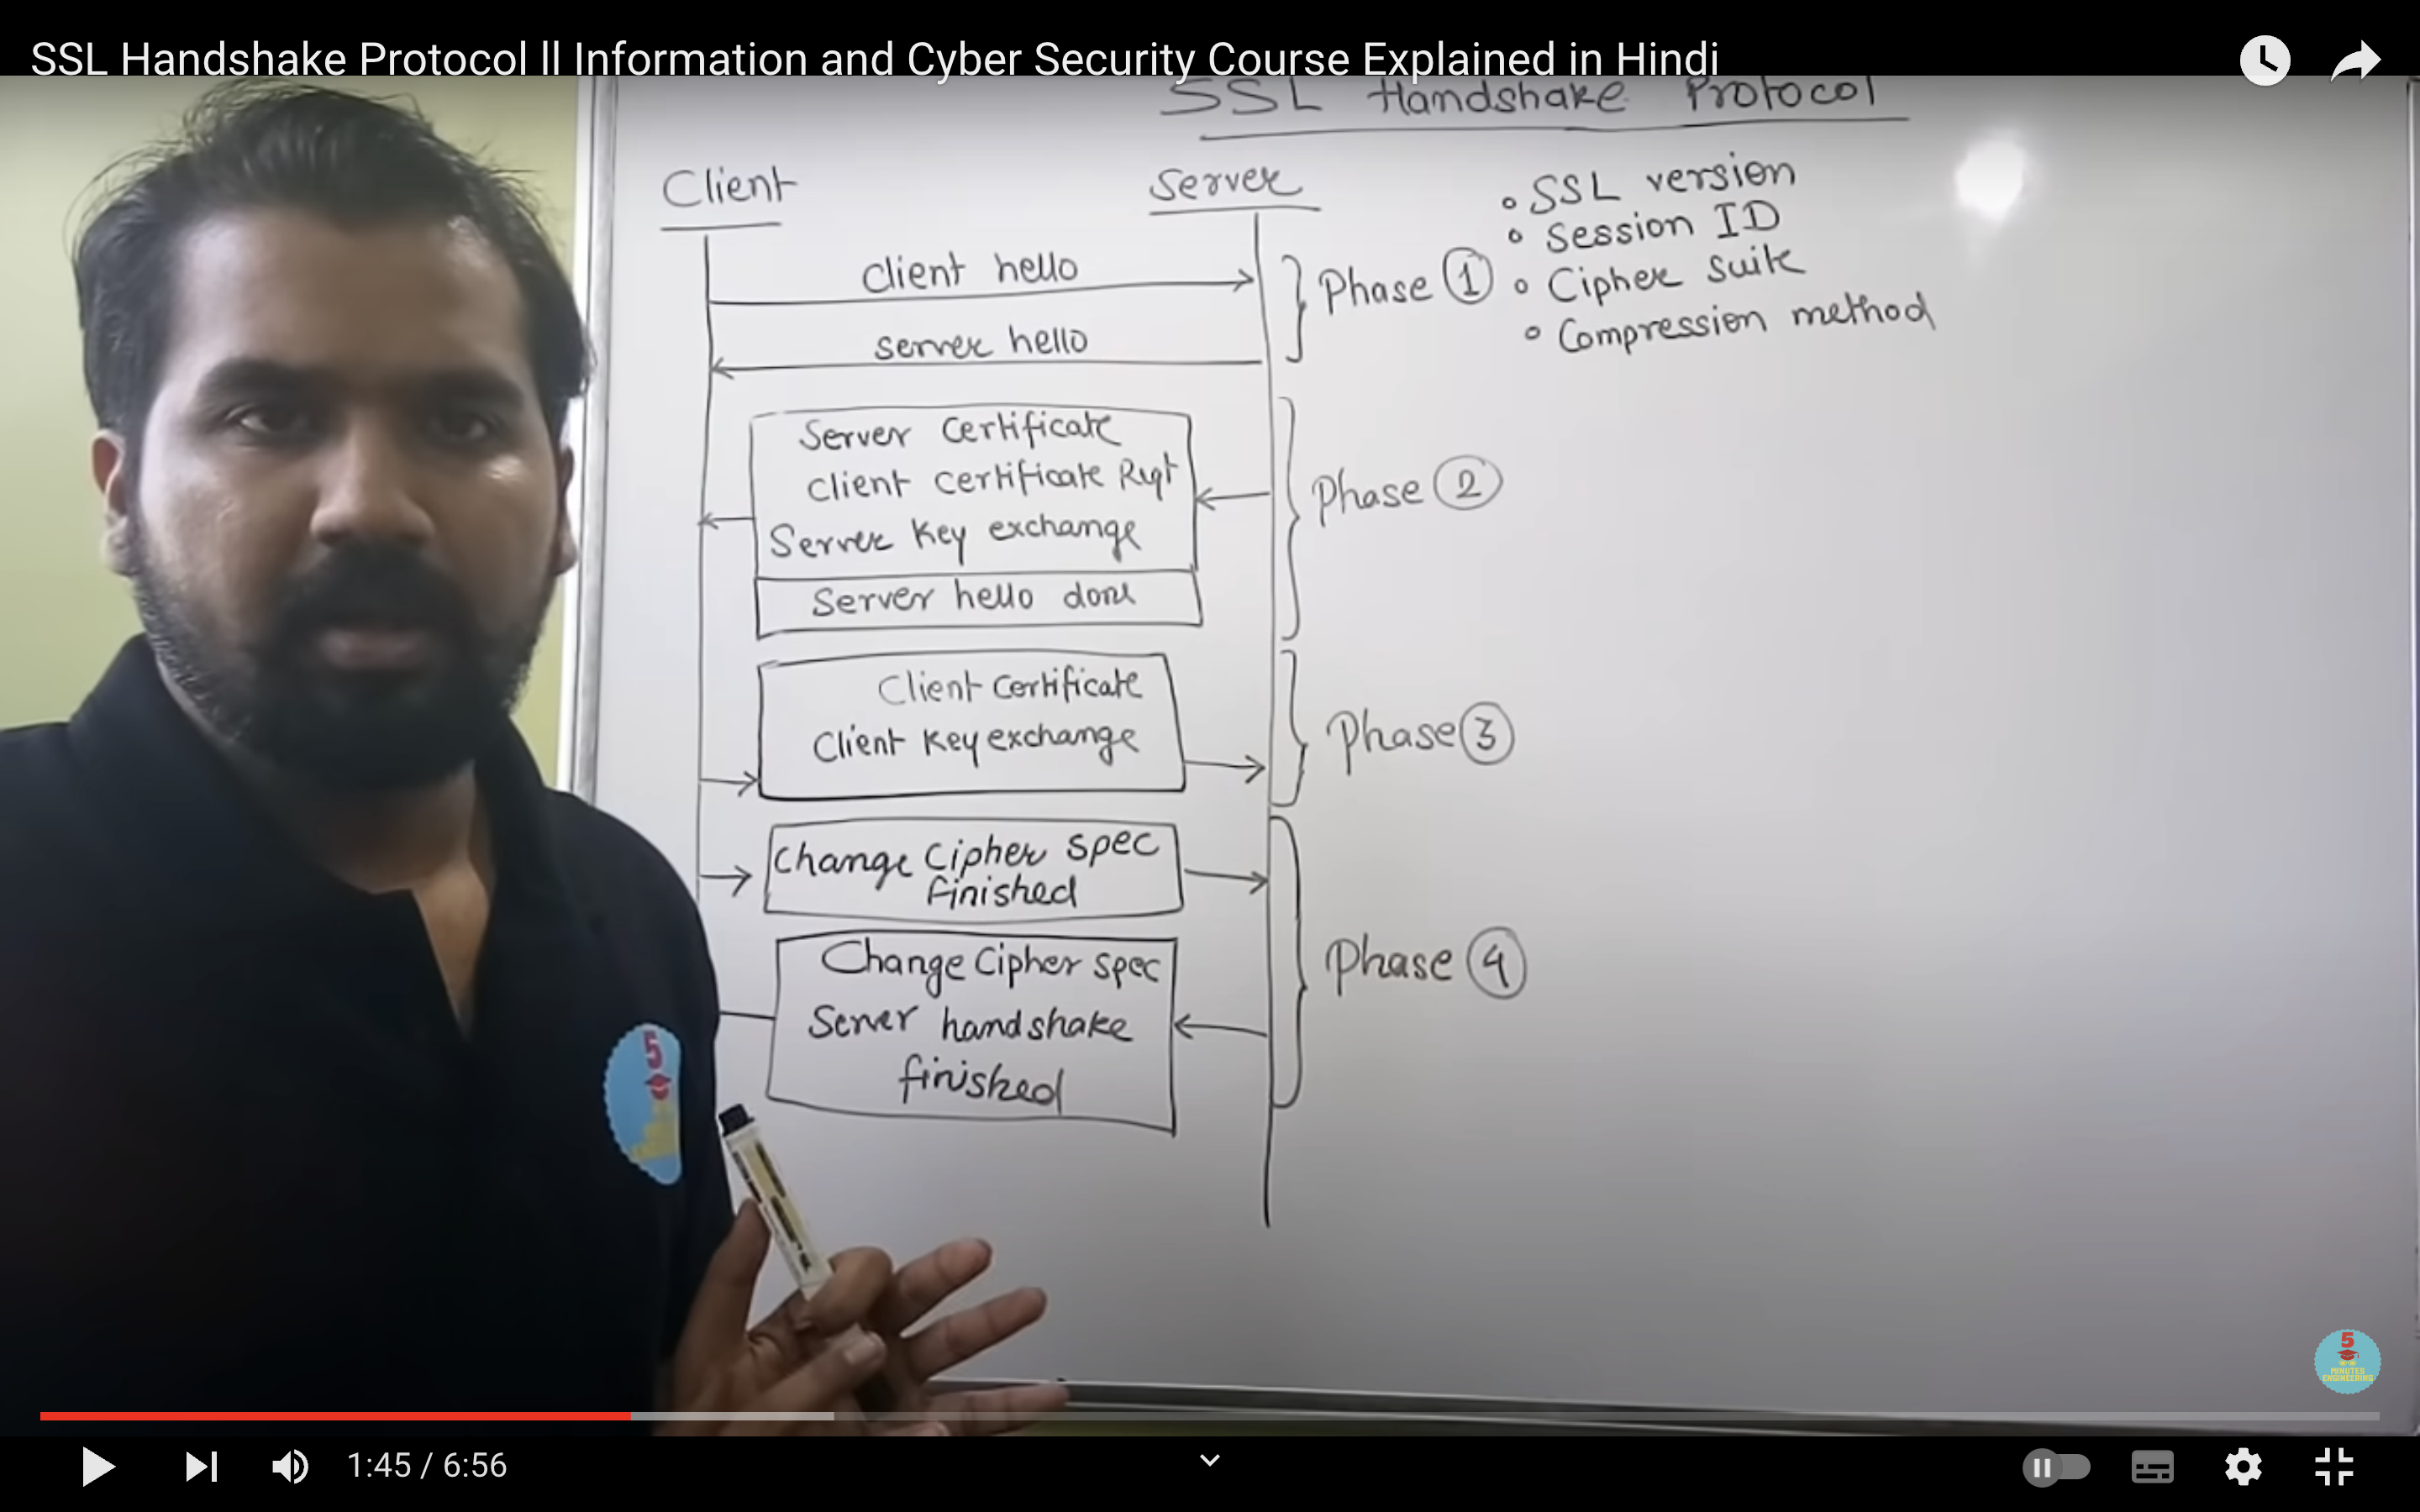 SSL Handshake Protocol ll Information and Cyber Security Course Explained in Hindi
SSL Handshake Protocol
Client
Server
client hello
server hello
Phase 1
SSL version
Session ID
Cipher suite
Compression method
Server Certificate
Client Certificate Rqt
Server Key exchange
Server hello done
Phase 2
Client Certificate
Client Key exchange
Phase 3
Change Cipher spec
finished
Change Cipher spec
Server handshake
finished
Phase 4
5
5
MINUTES
ENGINEERING
1:45 / 6:56